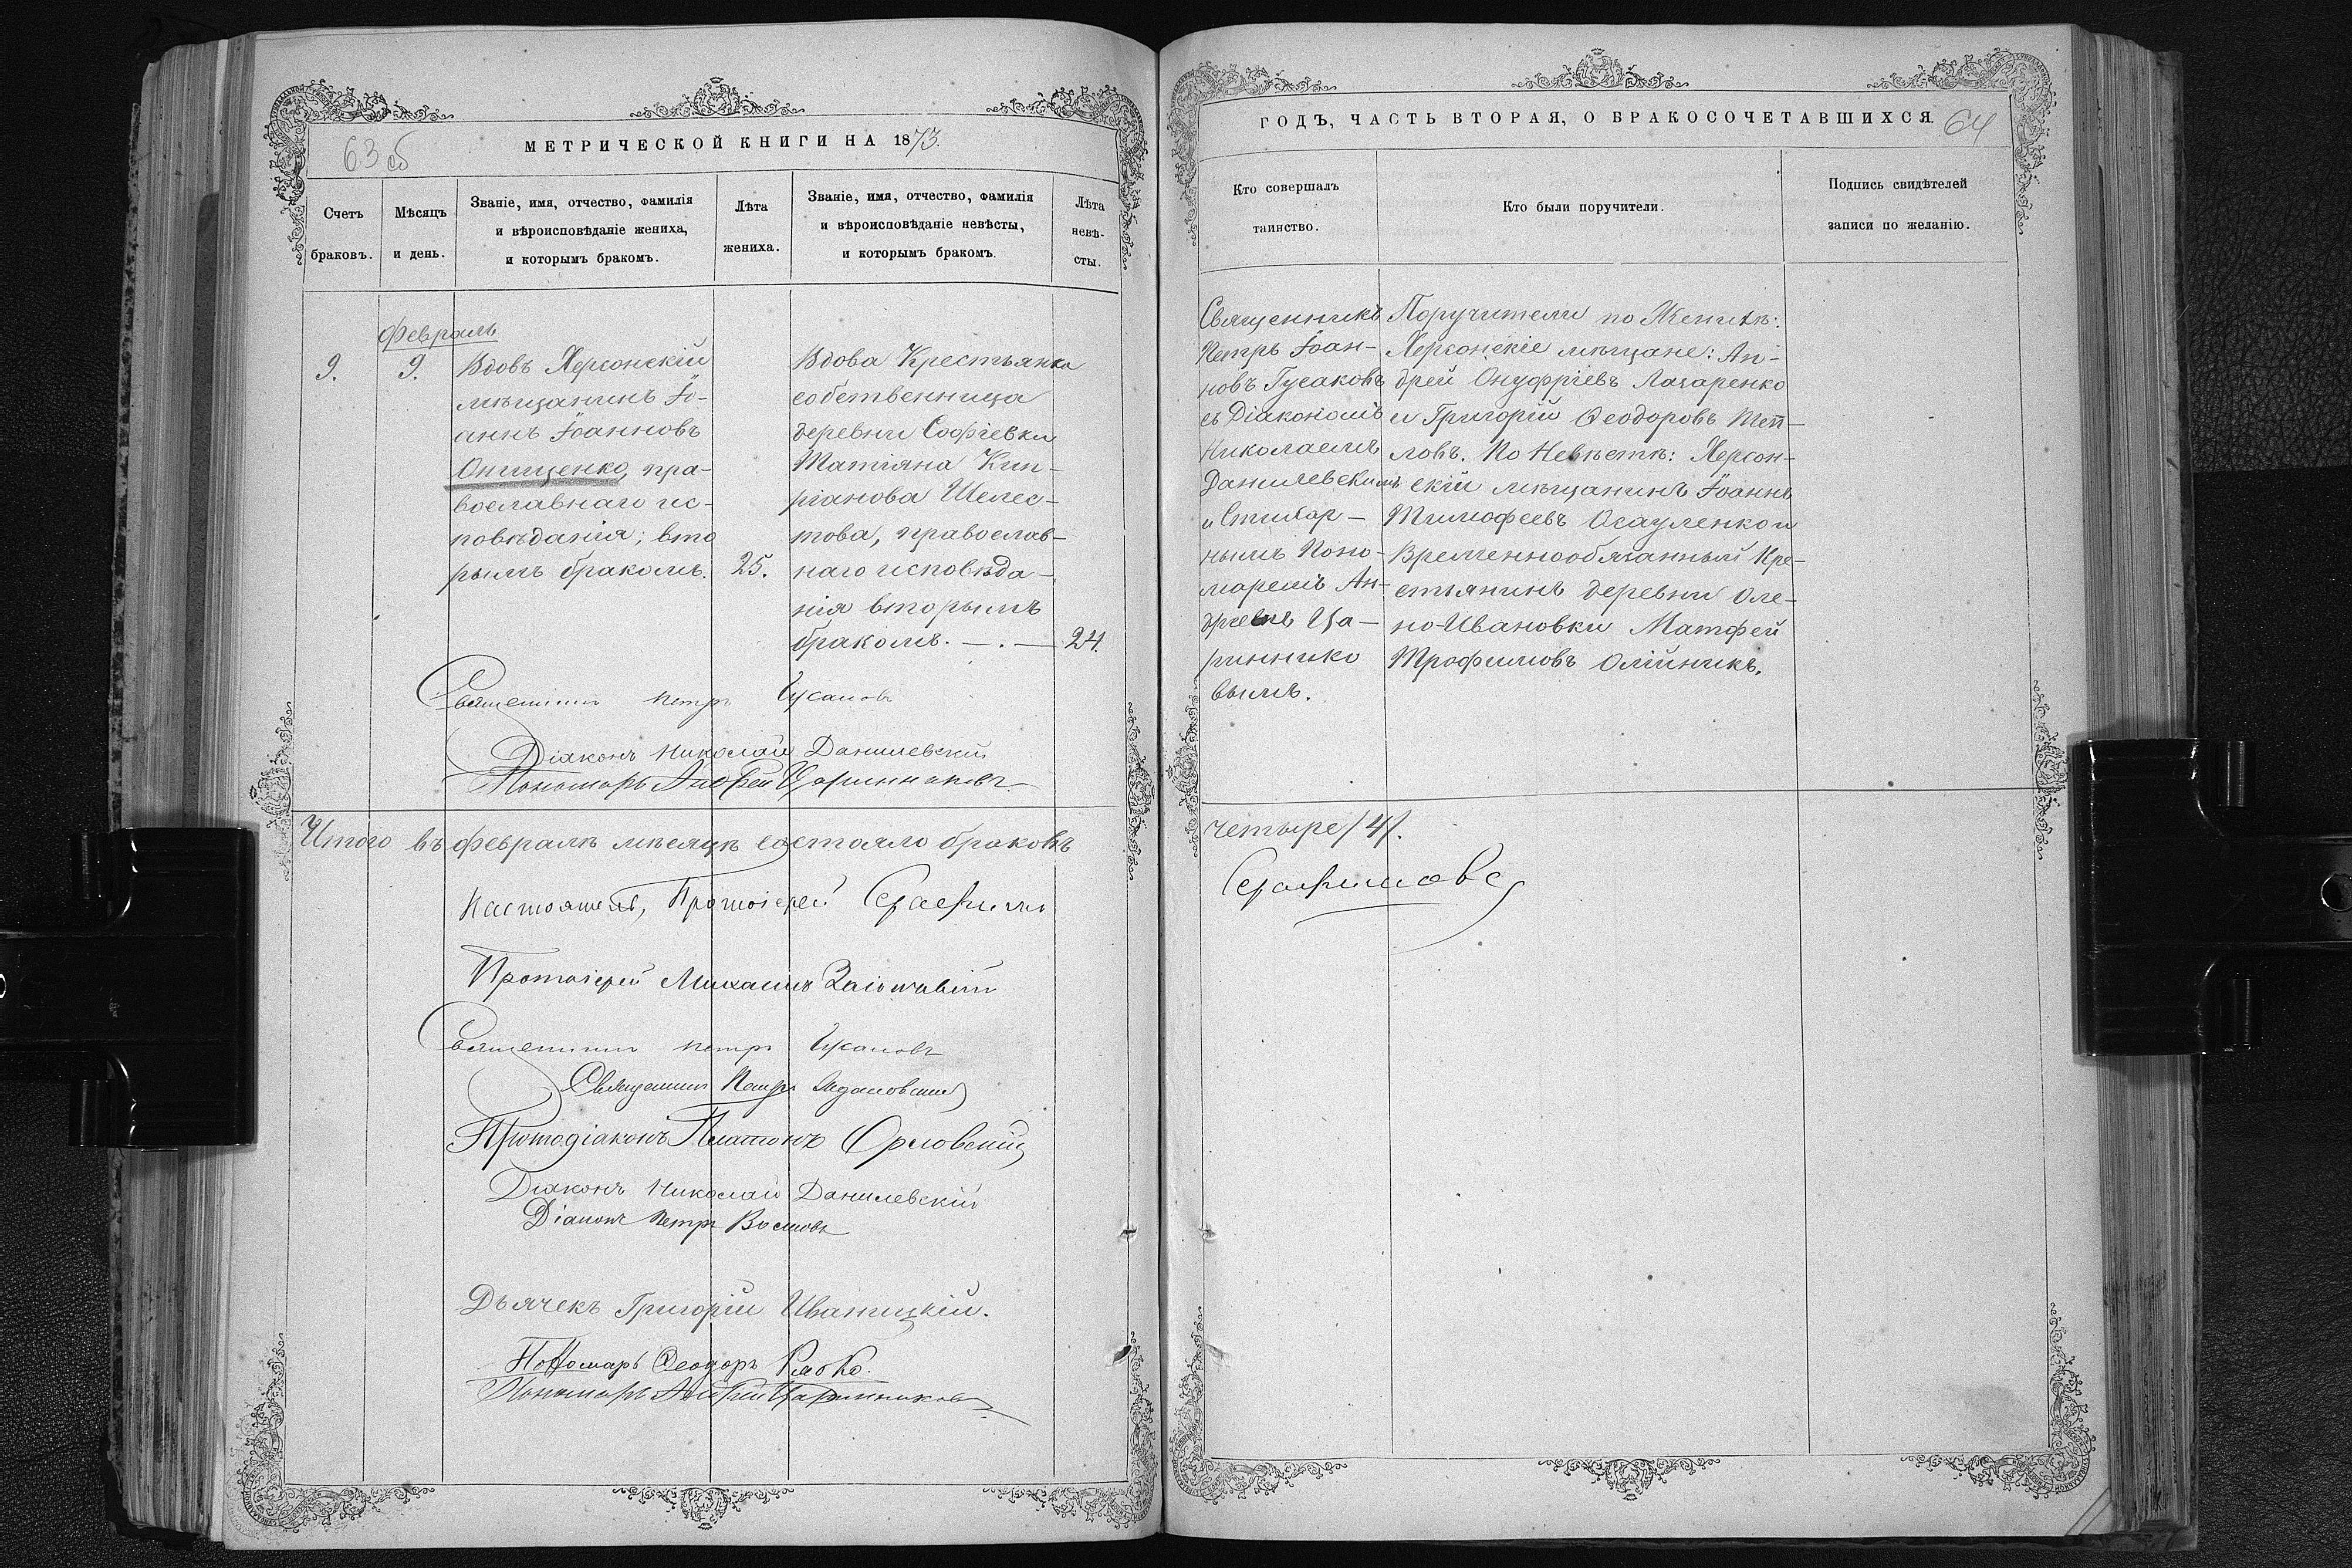 63 об
МЕТРИЧЕСКОЙ КНИГИ НА 1873.
Счетъ
браковъ.
Мѣсяцъ
и день.
Званіе, имя, отчество, фамилія
и вѣроисповѣданіе жениха,
и которымъ бракомъ.
Лѣта
жениха.
Званіе, имя, отчество, фамилія
и вѣроисповѣданіе невѣсты,
и которымъ бракомъ.
Лѣта
невѣ-
сты.
Февраль
9.
9.
Вдовъ Херсонскій
мѣщанинъ Іо-
аннъ Іоанновъ
Онищенко, пра-
вославнаго ис-
повѣданія; вто
рымъ бракомъ.
25.
Вдова Крестьянка
собственница
деревни Софіевки
Татіяна Кип-
ріанова Шелес-
това, православ-
наго исповѣда-
нія вторымъ
бракомъ. — . —
24.
Священникъ Петръ Гусаковъ
Діаконъ Николай Данилевскій
Пономарь Андрей Царинниковъ
Итого въ февралѣ мѣсяцѣ состояло браковъ
Настоятель, Протоіерей Серафимъ
Протоіерей Михаилъ
Священникъ Петръ Гусаковъ
Священникъ
Протодіаконъ Платонъ Орловскій
Діаконъ Николай Данилевскій
Діаконъ Петръ
Дьячекъ Григорій Иваницкій.
Пономарь Ѳеодоръ
Пономарь Андрей Царинниковъ
ГОДЪ, ЧАСТЬ ВТОРАЯ, О БРАКОСОЧЕТАВШИХСЯ.
64
Кто совершалъ
таинство.
Кто были поручители.
Подпись свидѣтелей
записи по желанію.
Священникъ
Петръ Іоан-
новъ Гусаковъ
съ Діакономъ
Николаемъ
Данилевскимъ
и Стихар-
нымъ Поно-
маремъ Ан-
дреемъ Ца-
риннико
вымъ.
Поручители по Женихѣ:
Херсонскіе мѣщане: Ан-
дрей Онуфріевъ Лазаренко
и Григорій Ѳеодоровъ Теп-
ловъ. По Невѣстѣ: Херсон-
скій мѣщанинъ Іоаннъ
Тимофеевъ Осауленко и
Временнообязанный Кре-
стьянинъ деревни Оле-
но-Ивановки Матфей
Трофимовъ Олійникъ.
четыре /4/.
Серафимовъ